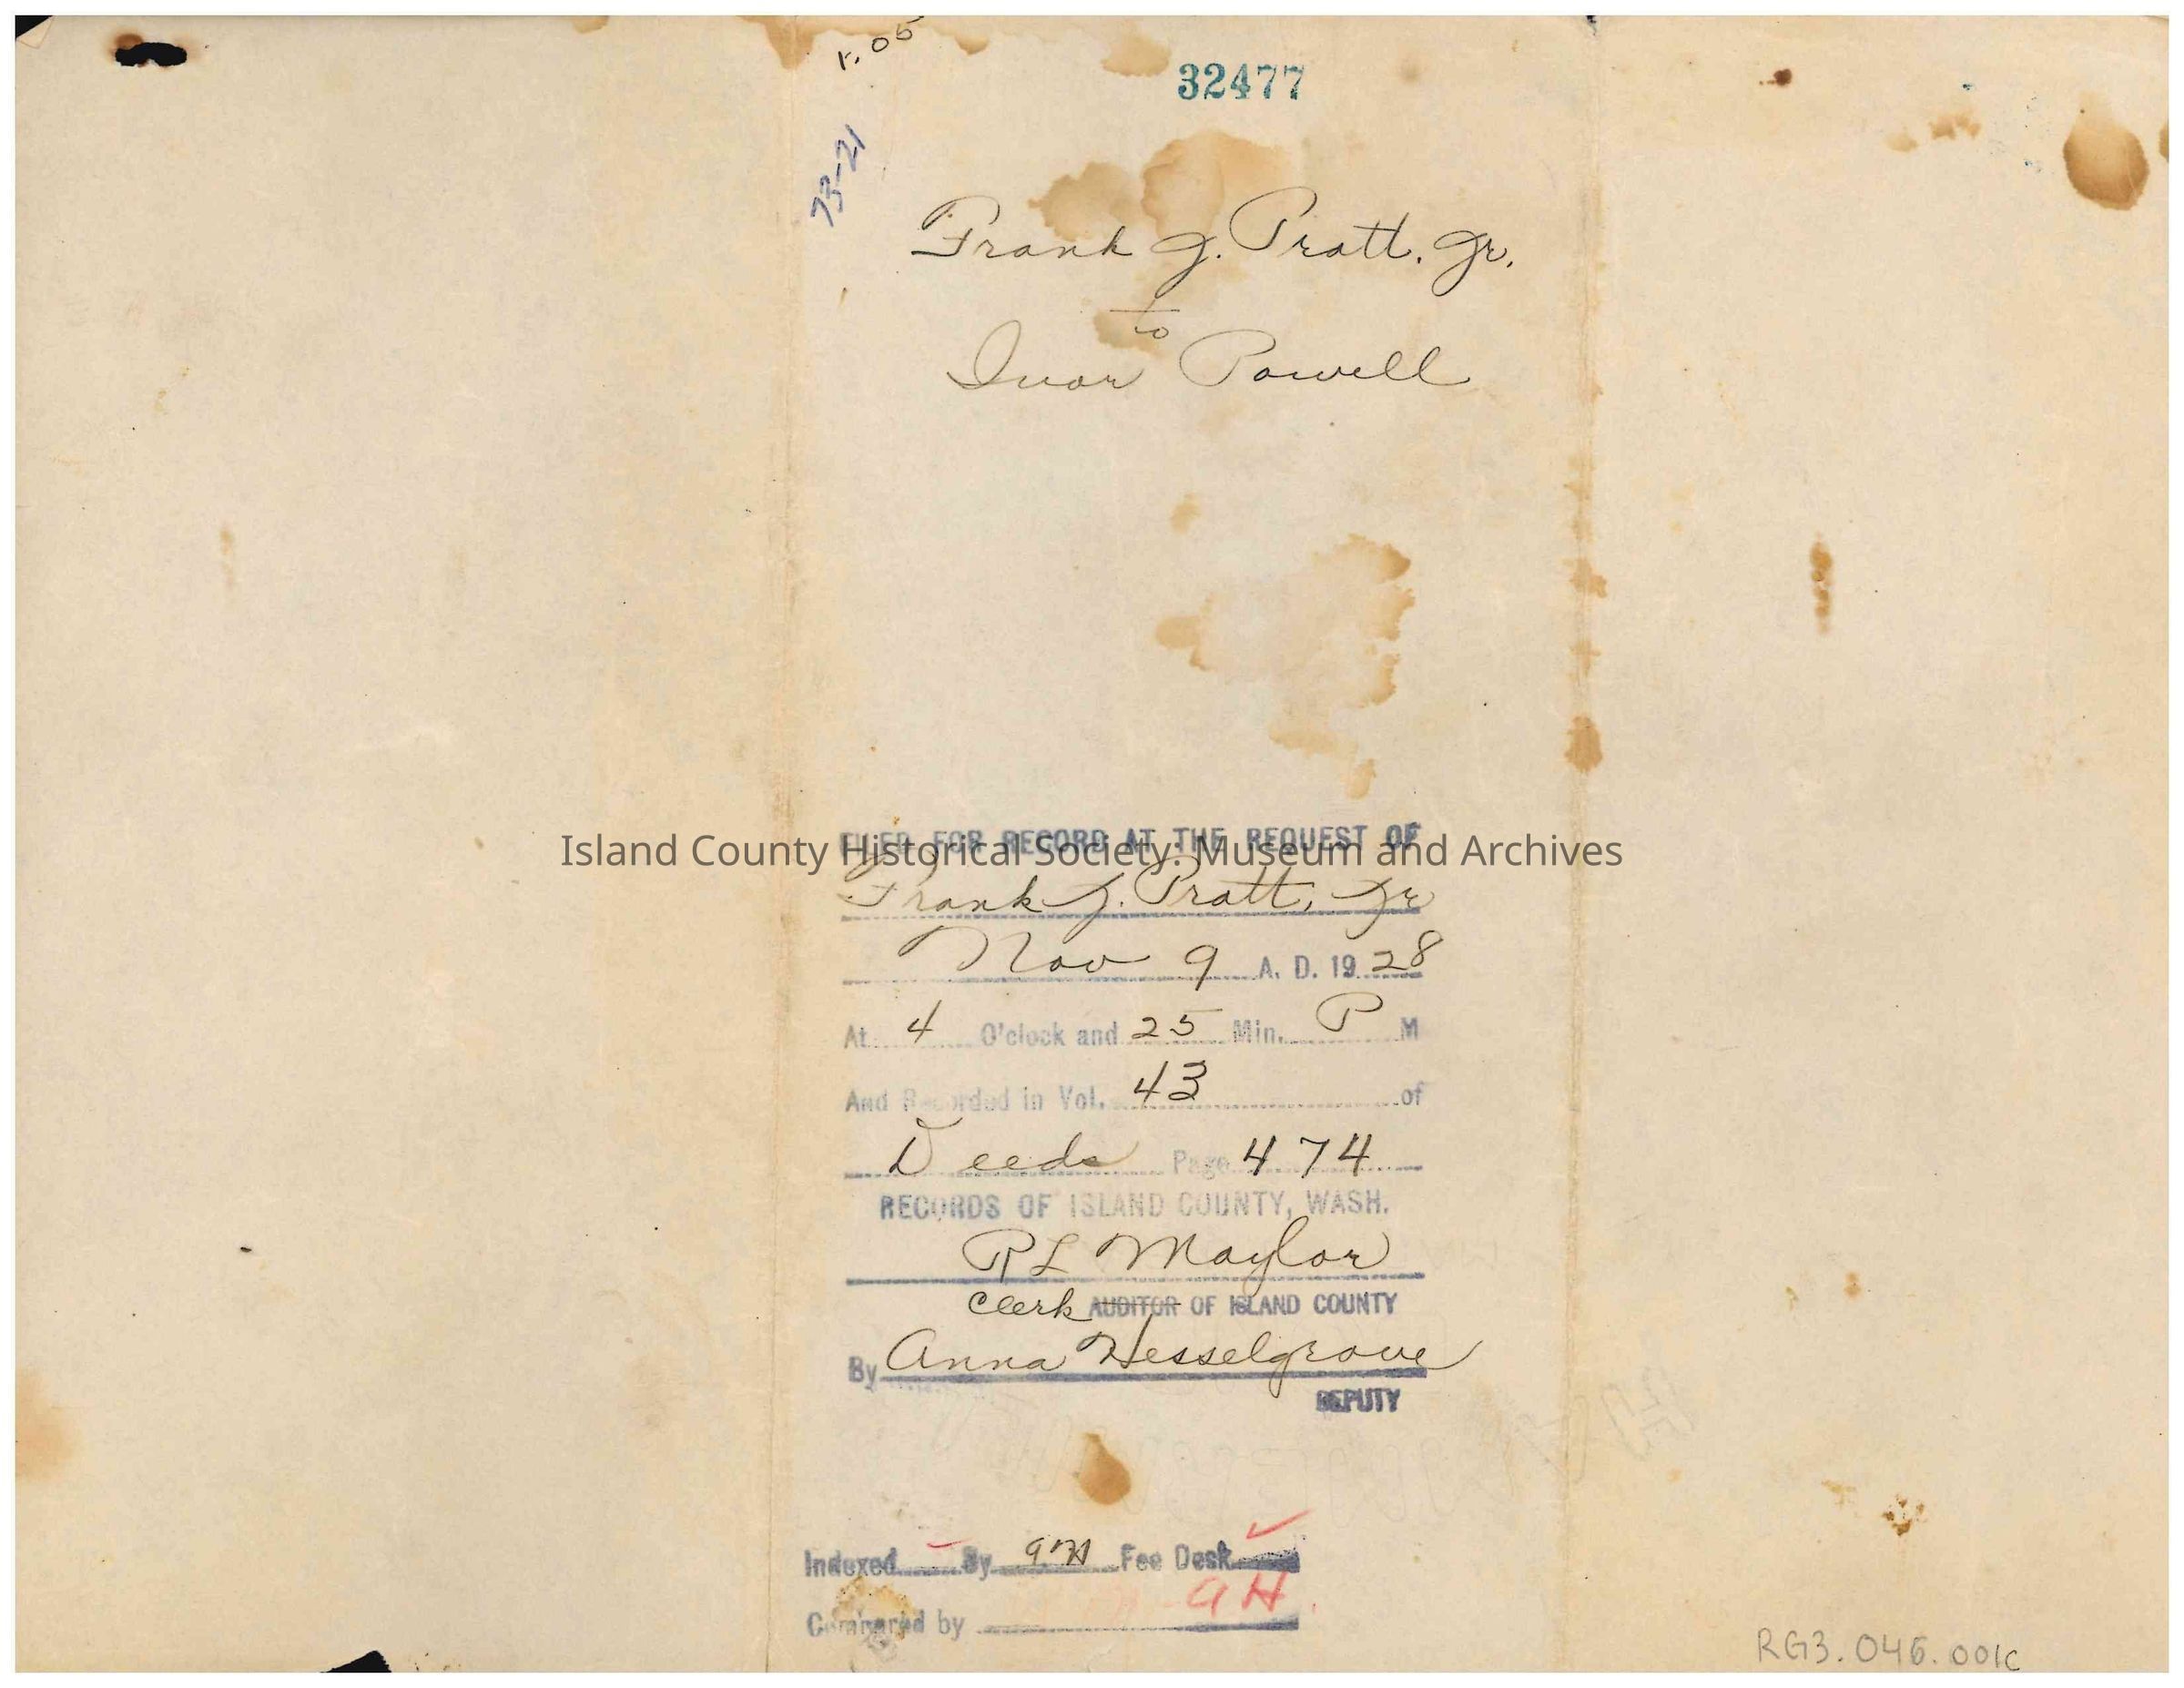 1.05
32477
73-21
Frank J. Pratt. Jr.
to
Ivar Powell
FILED FOR RECORD AT THE REQUEST OF
Island County Historical Society: Museum and Archives
Frank J. Pratt, Jr
Nov 9 A. D. 19 28
At 4 O'clock and 25 Min. P M
And Recorded in Vol. 43 of
Deeds Page 474
RECORDS OF ISLAND COUNTY, WASH.
R L Maylor
Clerk AUDITOR OF ISLAND COUNTY
By Anna Hesselgrave
DEPUTY
Indexed By Fee Desk
AH.
Compared by
RG3.046.001c